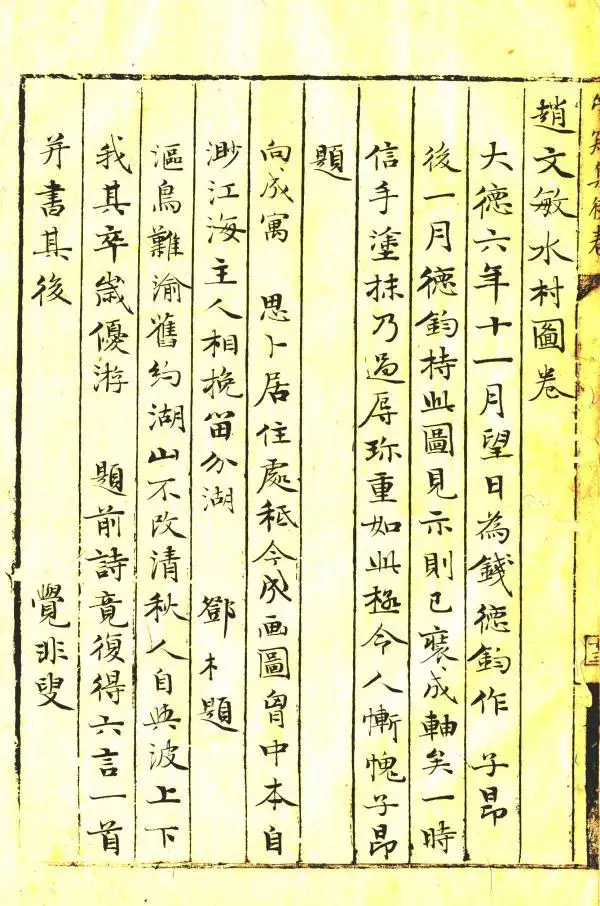 趙文敏水村圖卷
大德六年十一月望日為錢德鈞作 子昂
後一月德鈞持此圖見示則已裝成軸矣一時
信手塗抹乃過辱珎重如此極令人慚愧子昂
題
向成寓 思卜居住處秖今成画圖胷中本自
渺江海主人相挽留分湖 鄧木題
漚鳥難渝舊約湖山不改清秋人自與波上下
我其卒歲優游 題前詩竟復得六言一首
并書其後 覺非叟